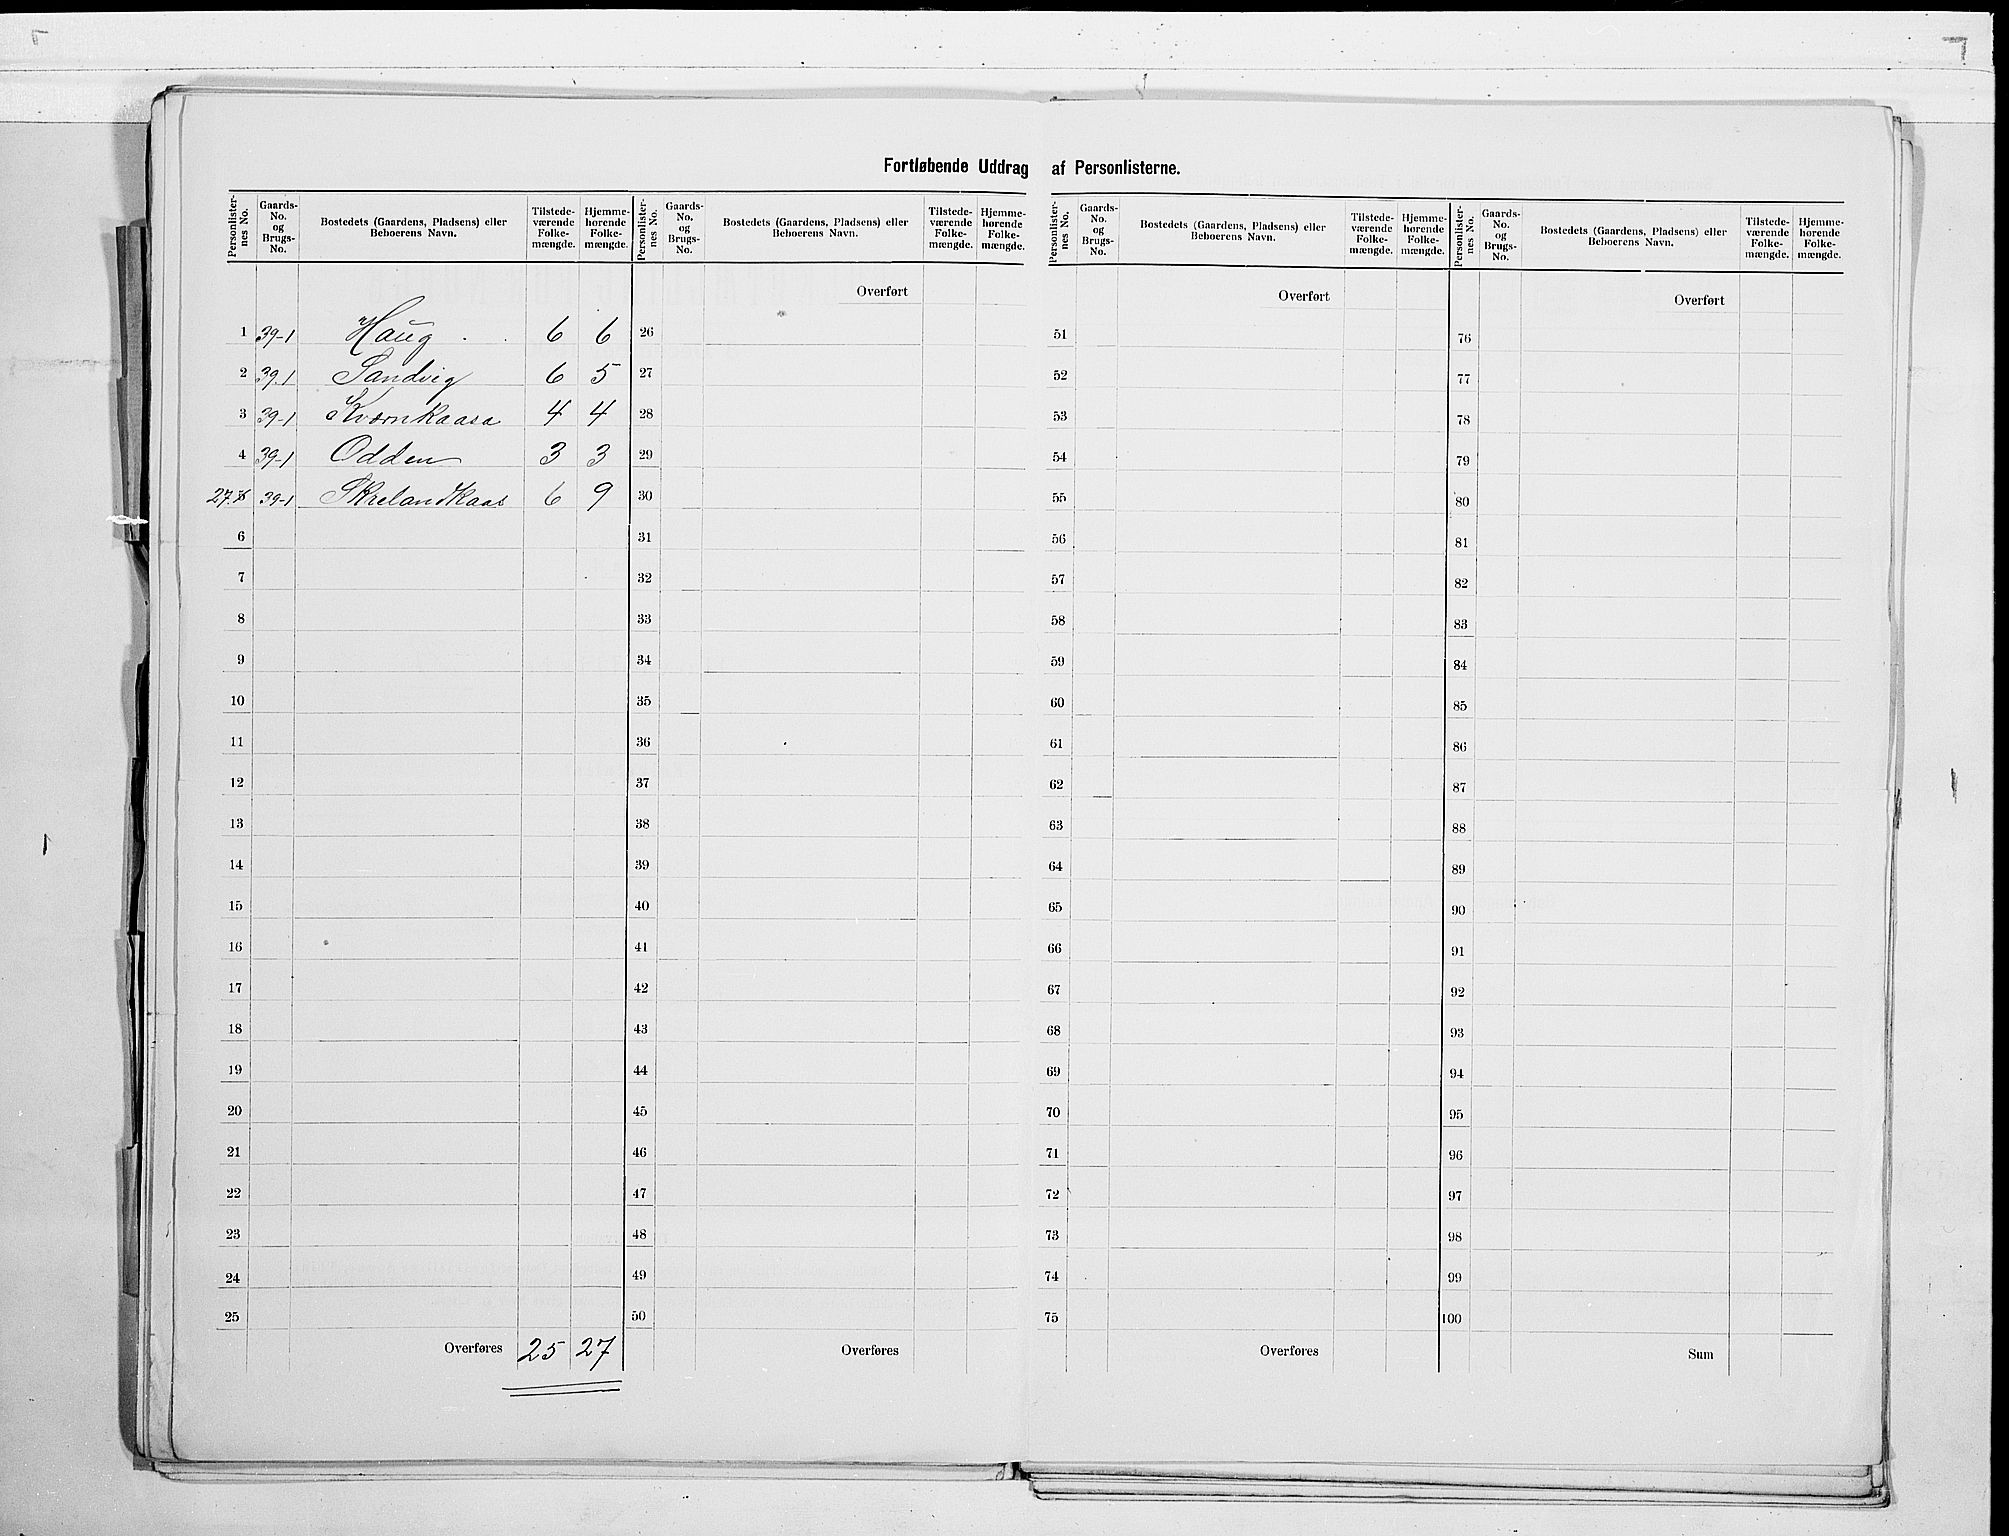 Fortløbende Uddrag af Personlisterne.
Personlister-nes No. Gaards-No. og Brugs-No. Bostedets (Gaardens, Pladsens) eller Beboerens Navn. Tilstede-værende Folke-mængde. Hjemme-hørende Folke-mængde.
1 39-1 Haug 6 6
2 39.1 Sandvig 6 5
3 39-1 Kværnkaasa 4 4
4 39-1 Odden 3 3
27. 39-1 Skrelandkaas 6 9
6
7
8
9
10
11
12
13
14
15
16
17
18
19
20
21
22
23
24
25
Overføres 25 27
Personlister-nes No. Gaards-No. og Brugs-No. Bostedets (Gaardens, Pladsens) eller Beboerens Navn. Tilstede-værende Folke-mængde. Hjemme-hørende Folke-mængde.
Overført
26
27
28
29
30
31
32
33
34
35
36
37
38
39
40
41
42
43
44
45
46
47
48
49
50
Overføres
Personlister-nes No. Gaards-No. og Brugs-No. Bostedets (Gaardens, Pladsens) eller Beboerens Navn. Tilstede-værende Folke-mængde. Hjemme-hørende Folke-mængde.
Overført
51
52
53
54
55
56
57
58
59
60
61
62
63
64
65
66
67
68
69
70
71
72
73
74
75
Overføres
Personlister-nes No. Gaards-No. og Brugs-No. Bostedets (Gaardens, Pladsens) eller Beboerens Navn. Tilstede-værende Folke-mængde. Hjemme-hørende Folke-mængde.
Overført
76
77
78
79
80
81
82
83
84
85
86
87
88
89
90
91
92
93
94
95
96
97
98
99
100
Sum